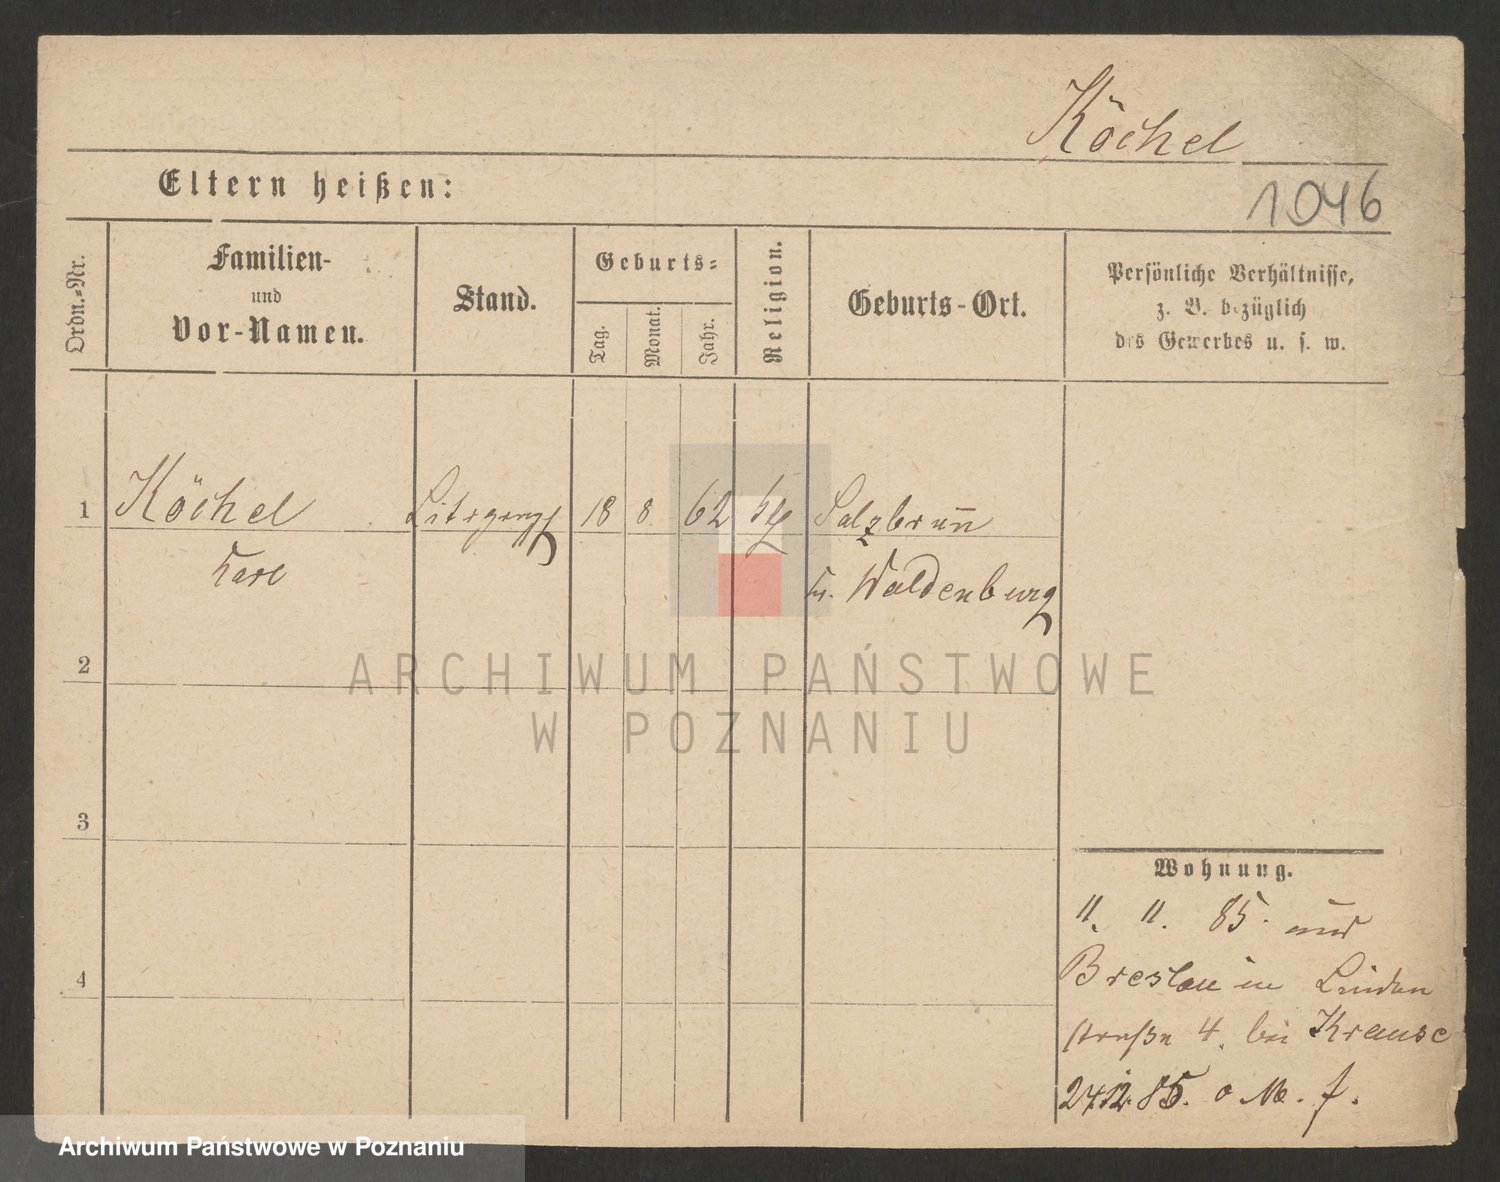 Köchel
Eltern heißen:
1046
Ordn.-Nr.
Familien-
und
Vor-Namen.
Stand.
Geburts-
Tag.
Monat.
Jahr.
Religion.
Geburts-Ort.
Persönliche Verhältnisse,
z. B. bezüglich
des Gewerbes u. s. w.
1
Köchel
18
8
62
Salzbrun̄
Karl
Kr. Waldenburg
2
ARCHIWUM PAŃSTWOWE
W POZNANIU
3
Wohnung.
11. 11. 85. aus
Breslau in Linden
straße 4. bei Krause
24.12.85. o M. f.
4
Archiwum Państwowe w Poznaniu